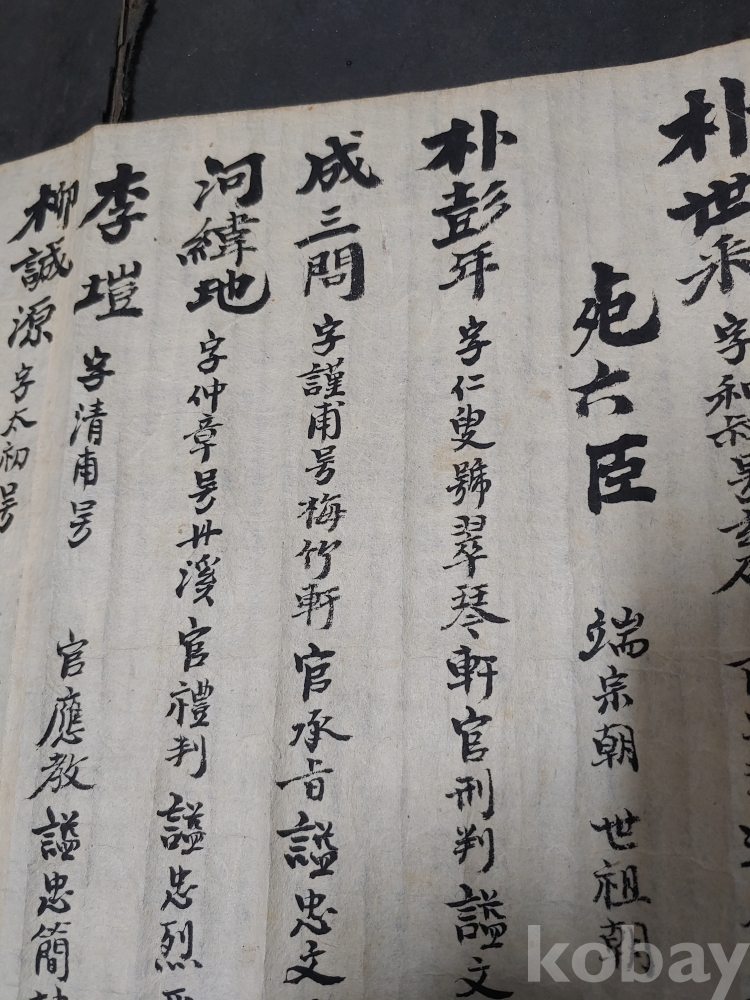 朴世采 字和叔号玄石
死六臣 端宗朝 世祖朝
朴彭年 字仁叟號翠琴軒官刑判諡文
成三問 字謹甫号梅竹軒官承旨諡忠文
河緯地 字仲章号丹溪官禮判諡忠烈
李塏 字清甫号 官應教諡忠簡
柳誠源 字太初号
kobay